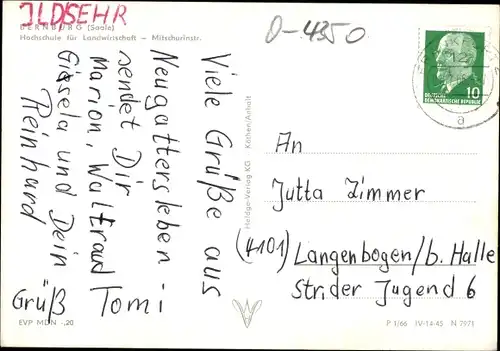 JLDSEHR
BERNBURG (Saale)
Hochschule für Landwirtschaft – Mitschurinstr.
D-4350
Viele Grüße aus
Neugattersleben
sendet Dir
Marion, Waltraud
Gissela und Dein
Reinhard
Grüß Tomi
EVP MDN -,20
Heldge-Verlag KG Köthen/Anhalt
10
DEUTSCHE
DEMOKRATISCHE REPUBLIK
a
An
Jutta Zimmer
(4101) Langenbogen/b. Halle
Str. der Jugend 6
P 1/66 IV-14-45 N 7971